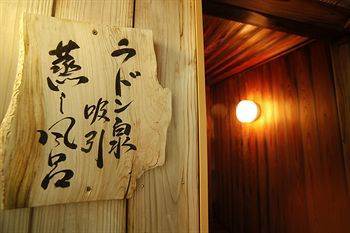 ラドン泉
吸引
蒸し風呂